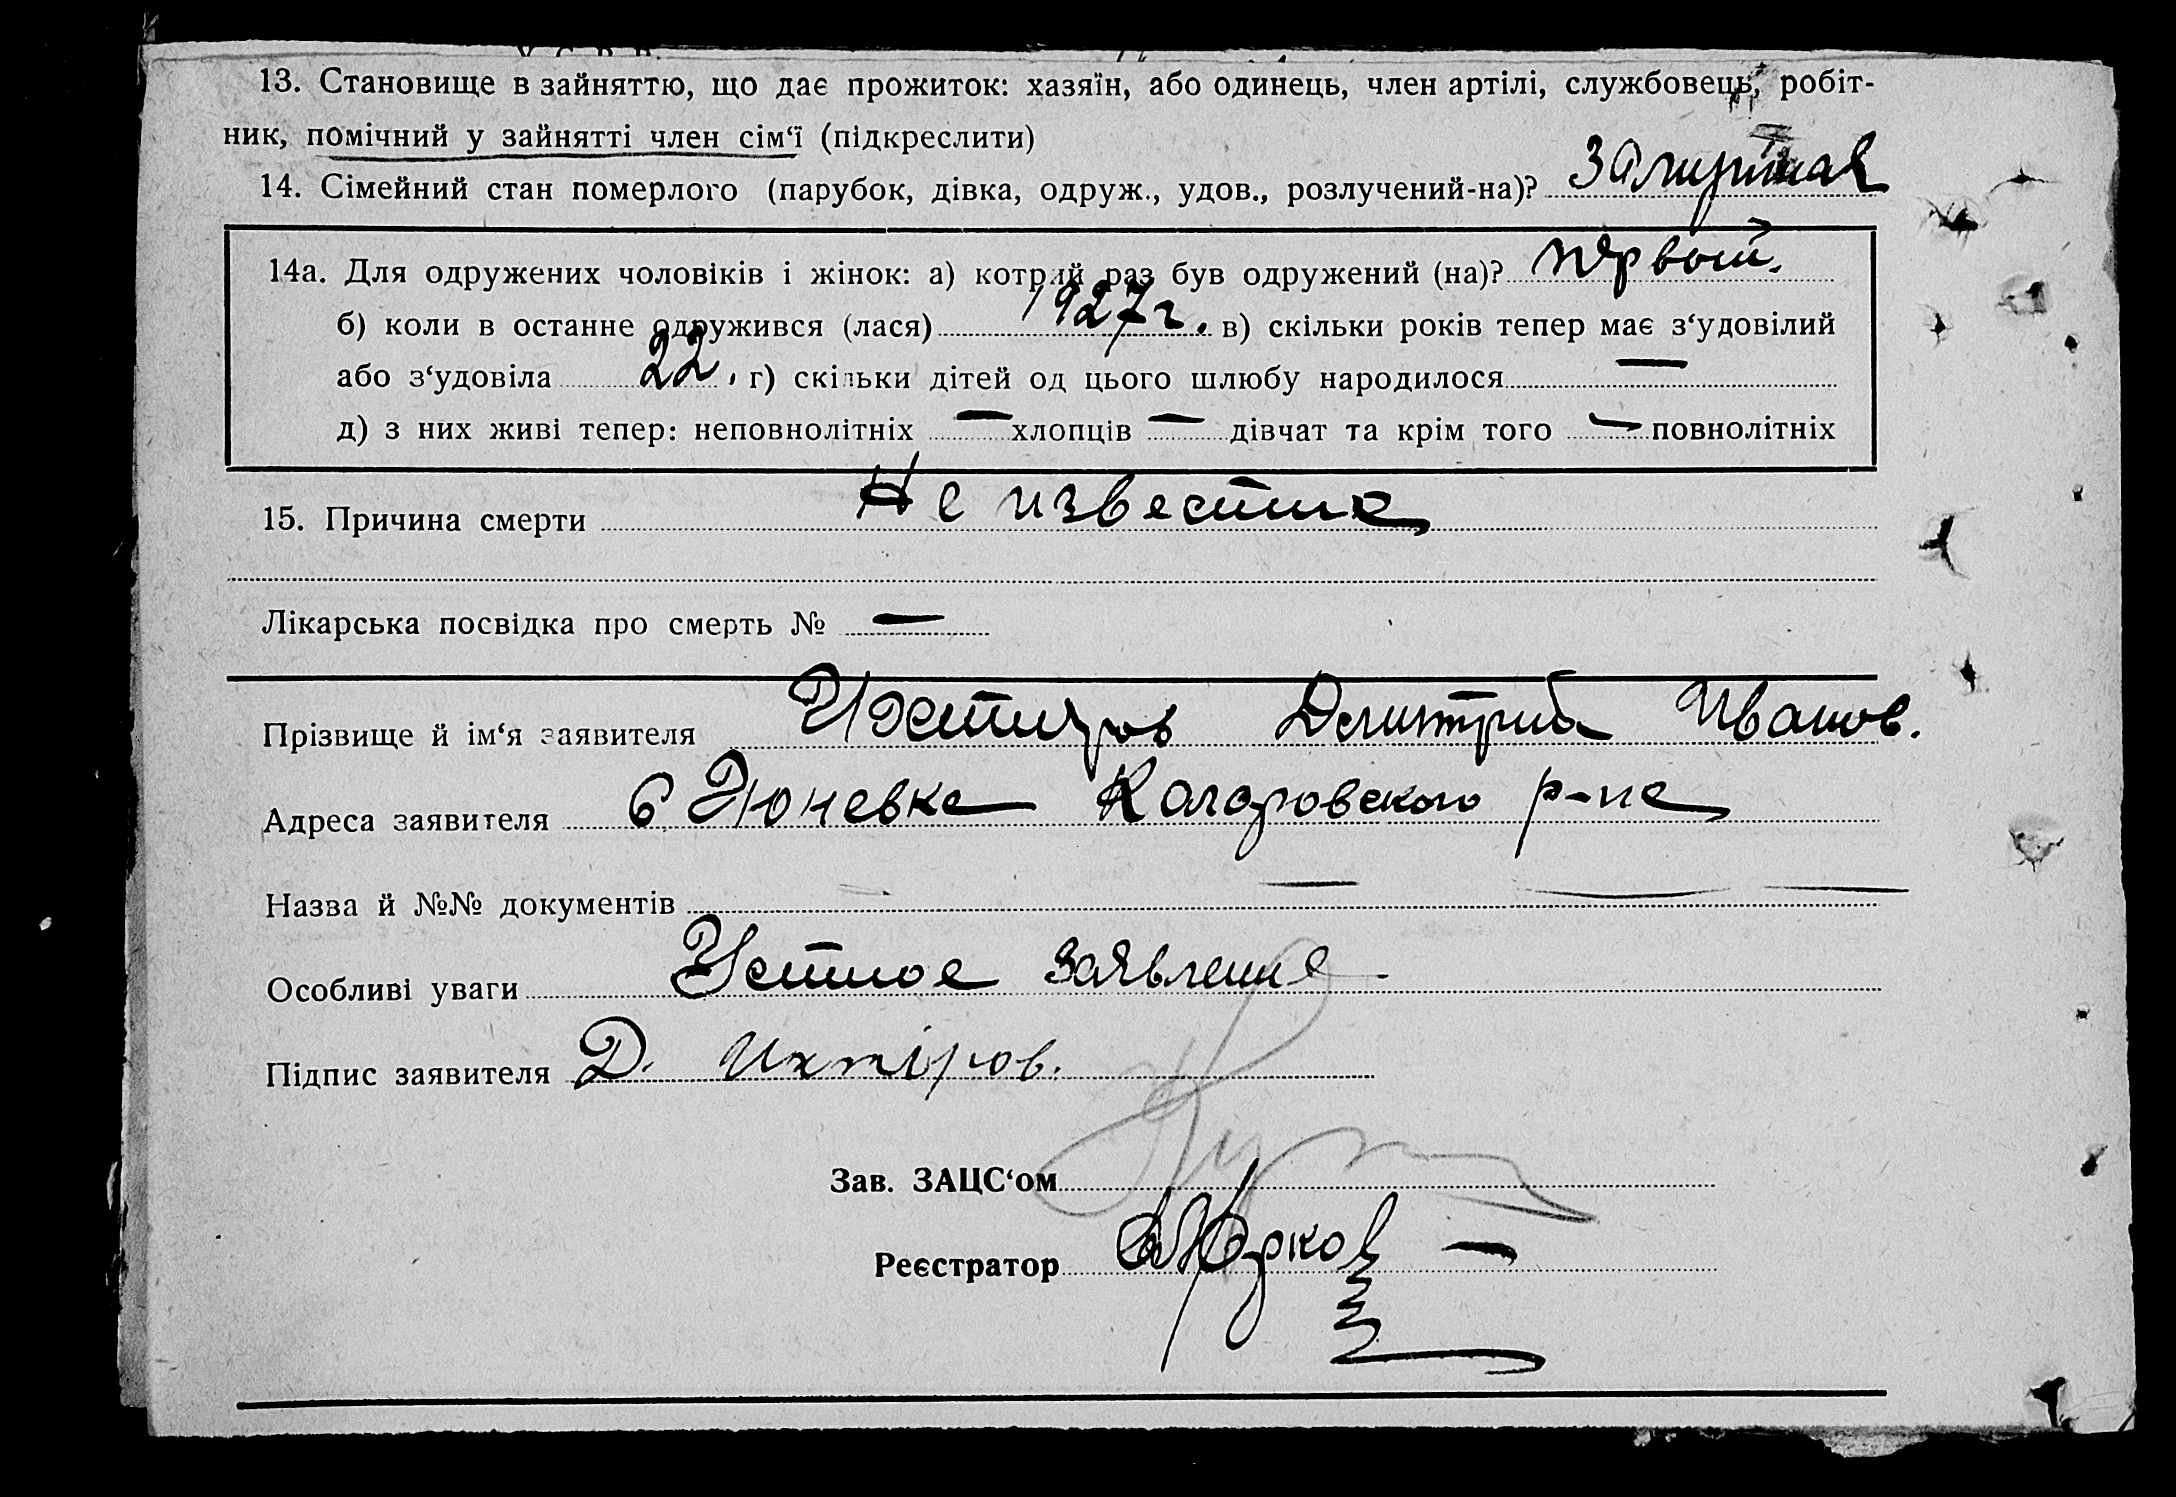 13. Становище в зайняттю, що дає прожиток: хазяїн, або одинець, член артілі, службовець, робіт-
ник, помічний у зайнятті член сім‘ї (підкреслити)
14. Сімейний стан померлого (парубок, дівка, одруж., удов., розлучений-на)? Замужная
14а. Для одружених чоловіків і жінок: а) котрий раз був одружений (на)? первый.
б) коли в останне одружився (лася) 1927 г. в) скільки років тепер має з‘удовілий
або з‘удовіла 22, г) скільки дітей од цього шлюбу народилося —
д) з них живі тепер: неповнолітніх — хлопців — дівчат та крім того — повнолітніх
15. Причина смерти Не известна
Лікарська посвідка про смерть № —
Прізвище й ім‘я заявителя Ихтиров Дмитрий Иванов.
Адреса заявителя Коларовского р-на
Назва й №№ документів — — —
Особливі уваги Устное заявление
Підпис заявителя Д. Ихтіров.
Зав. ЗАЦС‘ом
Реєстратор